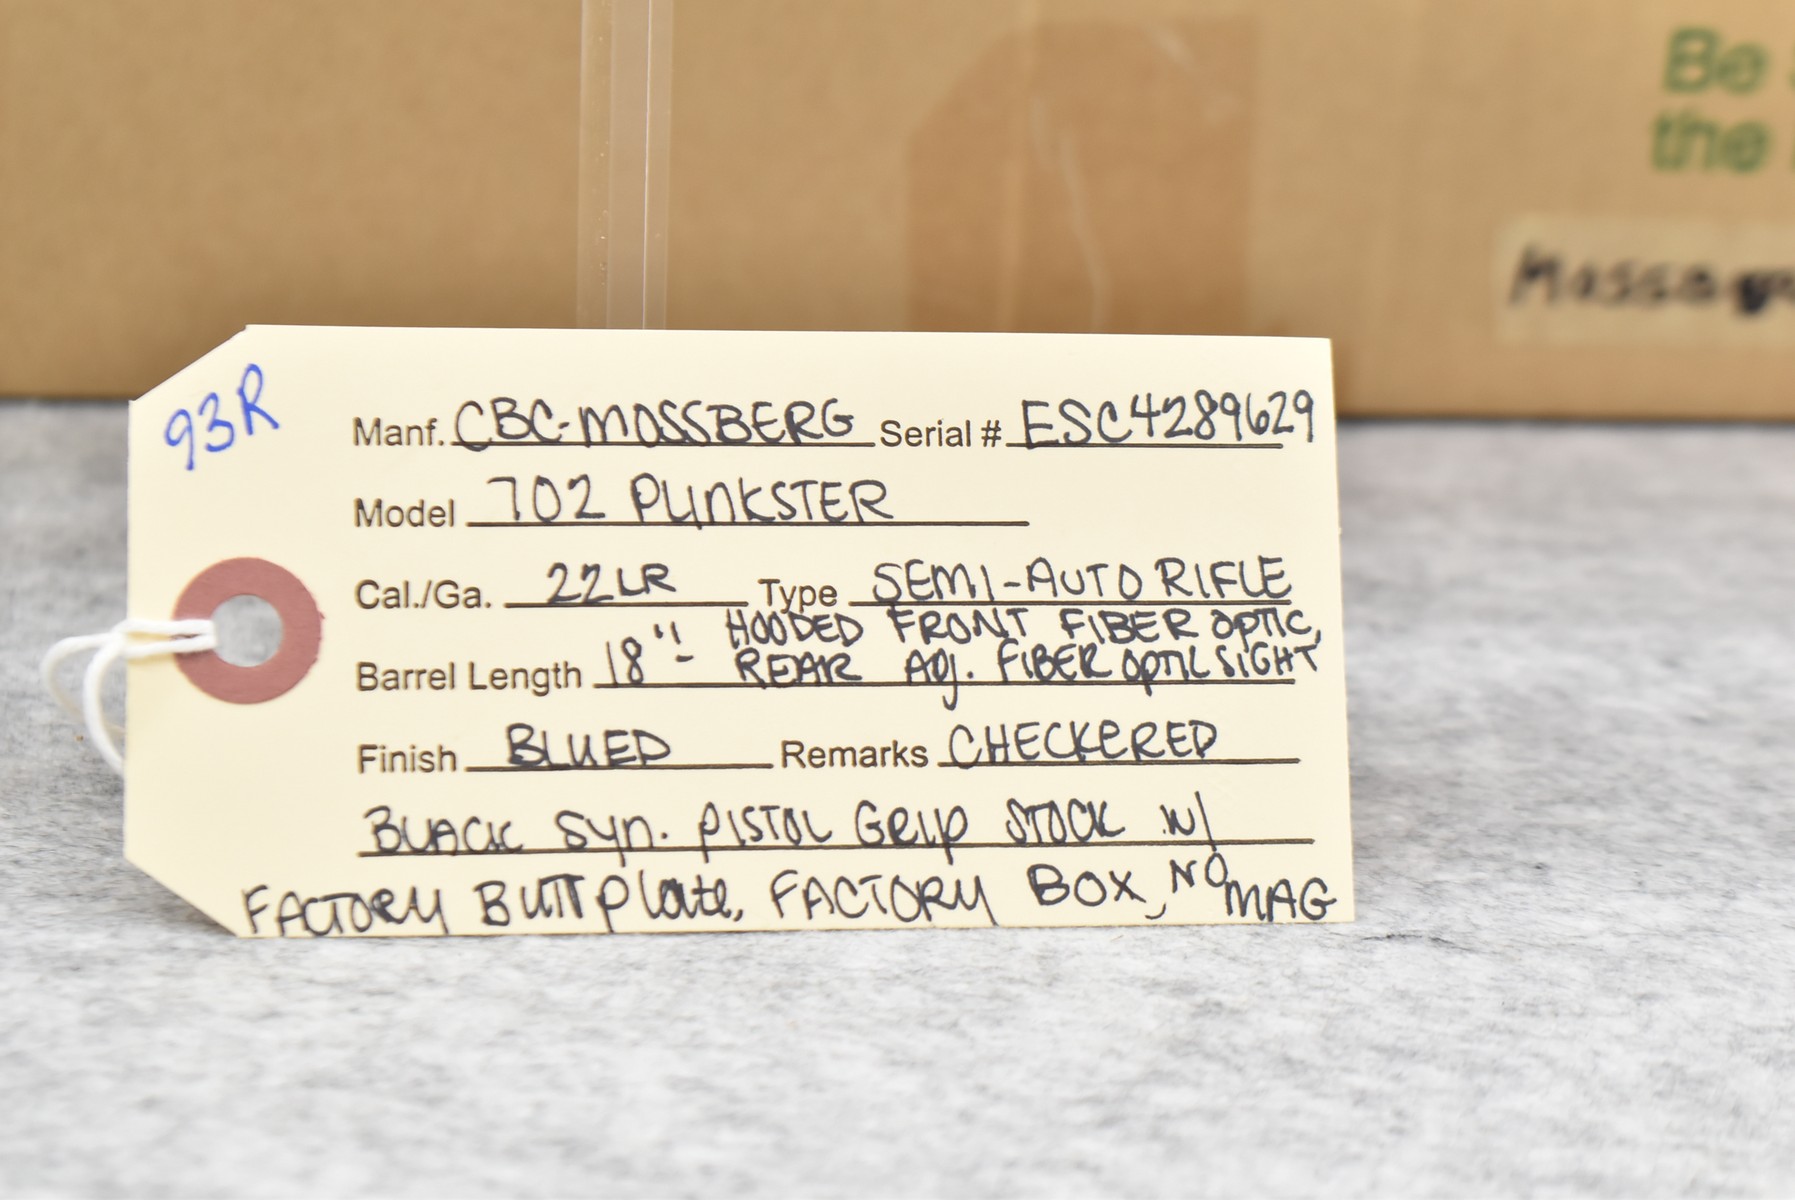 Be
the
93R
Manf. CBC-MOSSBERG Serial # ESC4289629
Model 702 PLINKSTER
Cal./Ga. 22LR Type SEMI-AUTO RIFLE
HOODED FRONT FIBER OPTIC,
Barrel Length 18"- REAR ADJ. FIBER OPTIC SIGHT
Finish BLUED Remarks CHECKERED
BLACK SYN. PISTOL GRIP STOCK W/
FACTORY BUTTPLATE, FACTORY BOX, NO MAG